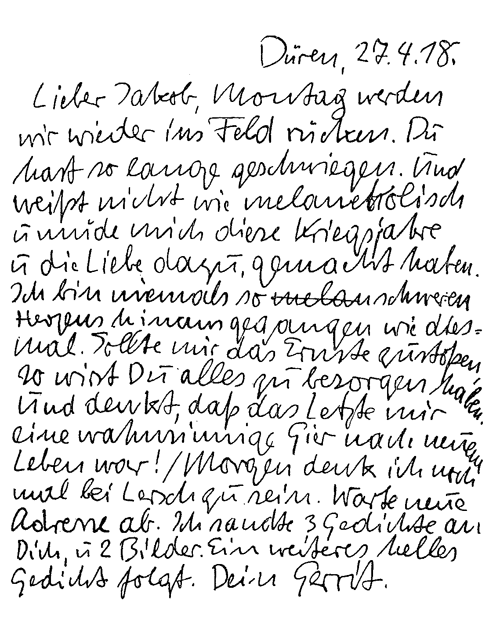 Düren, 27.4.18.
Lieber Jakob, Montag werden
wir wieder ins Feld rücken. Du
hast so lange geschwiegen. Und
weißt nicht wie melancholisch
u müde mich diese Kriegsjahre
u die Liebe dazu, gemacht haben.
Ich bin niemals so melan schweren
Herzens hinausgegangen wie dies=
mal. Sollte mir das Ernste zustoßen
so wirst Du alles zu besorgen haben.
Und denkt, daß das Letzte mir
eine wahnsinnige Gier nach neuem
Leben war! / Morgen denk ich noch
mal bei Lersch zu sein. Warte neue
Adresse ab. Ich sandte 3 Gedichte an
Dich, u 2 Bilder. Ein weiteres helles
Gedicht folgt. Dein Gerrit.